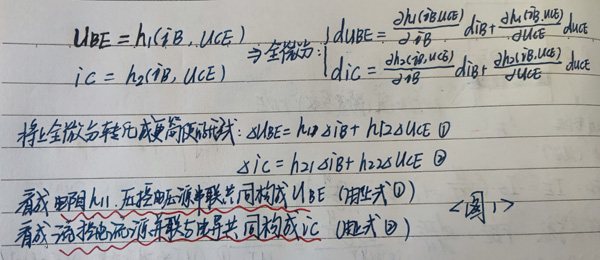 uBE = h1(iB, uCE) ⇒ 全微分: { duBE = ∂h1(iB,uCE)/∂iB diB + ∂h1(iB,uCE)/∂uCE duCE
ic = h2(iB, uCE) dic = ∂h2(iB,uCE)/∂iB diB + ∂h2(iB,uCE)/∂uCE duCE
将上全微分转化成更简便的形式: △uBE = h11△iB + h12△uCE ①
△ic = h21△iB + h22△uCE ②
看成电阻h11.压控电压源串联共同构成UBE (由上式①)
看成流控电流源并联与电导共同构成ic (由上式②) <图1>